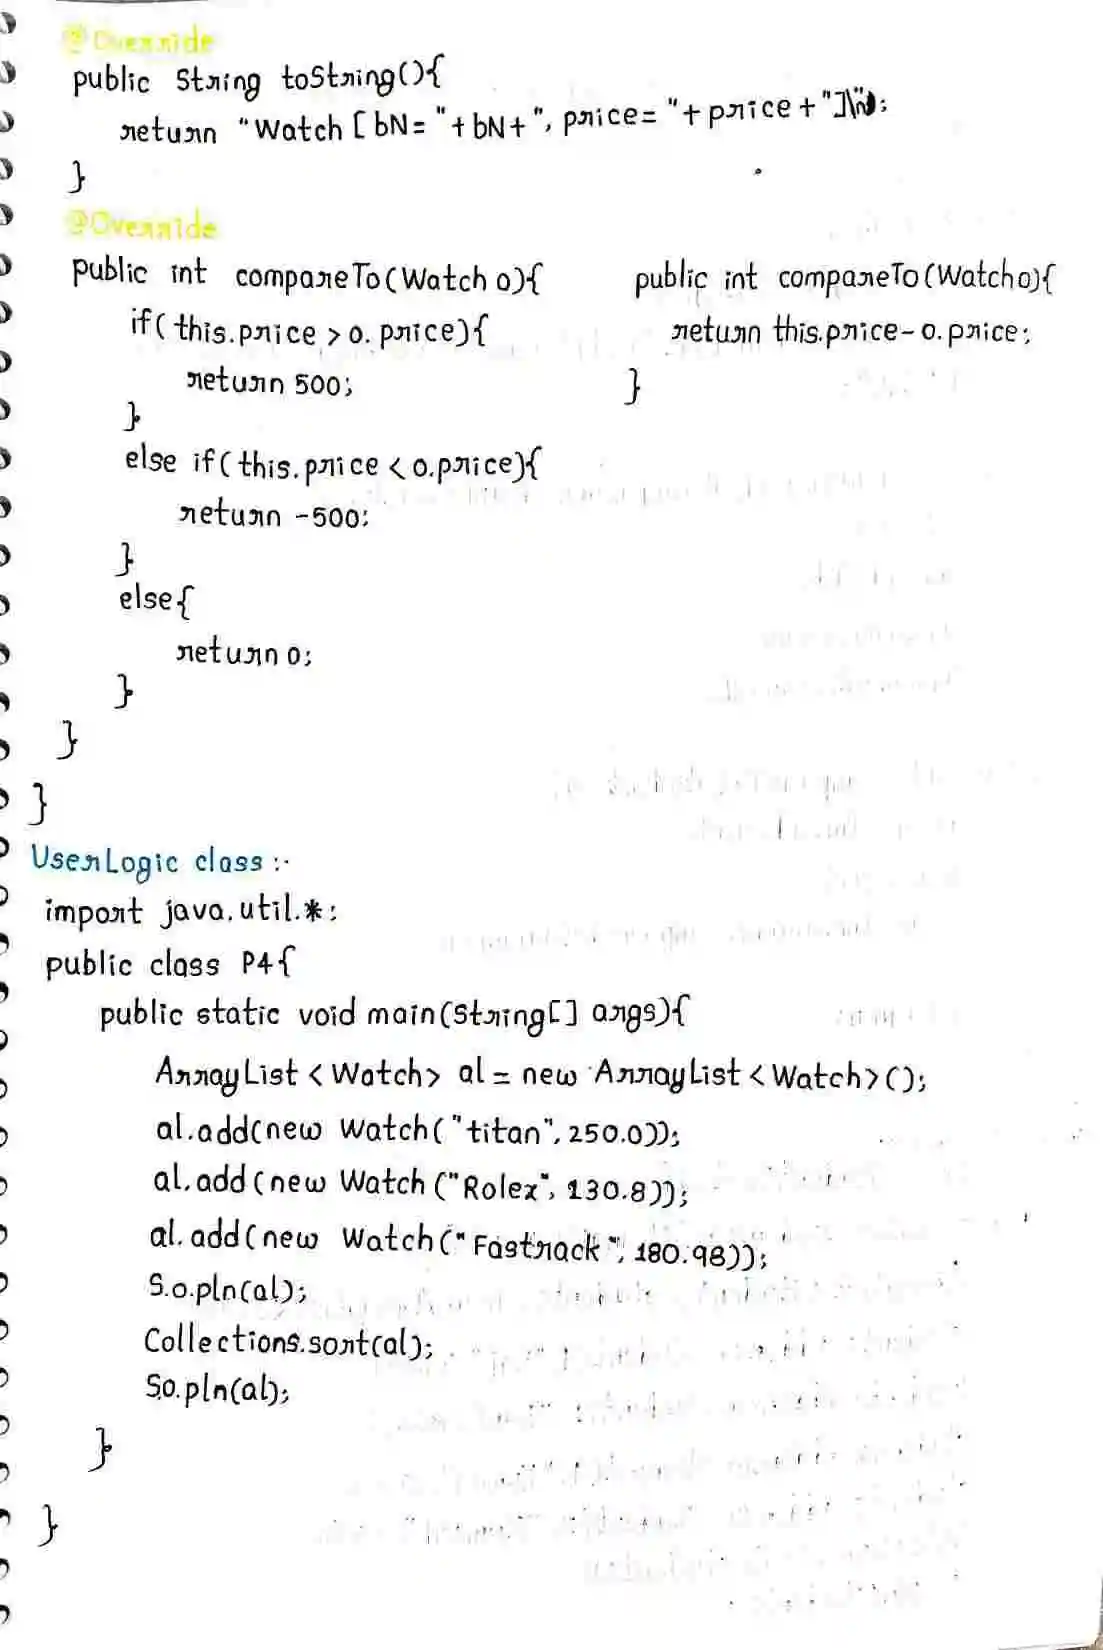 @Override
public String toString(){
return "Watch [ bN= "+bN+", price= "+price+"]\n";
}
@Override
public int compareTo(Watch o){
if(this.price > o.price){
return 500;
}
else if(this.price < o.price){
return -500;
}
else{
return 0;
}
}
}
public int compareTo(Watch o){
return this.price-o.price;
}
UserLogic class :-
import java.util.*;
public class P4{
public static void main(String[] args){
ArrayList <Watch> al = new ArrayList <Watch>();
al.add(new Watch("titan", 250.0));
al.add(new Watch("Rolex", 130.8));
al.add(new Watch("Fastrack", 180.98));
S.o.pln(al);
Collections.sort(al);
S.o.pln(al);
}
}